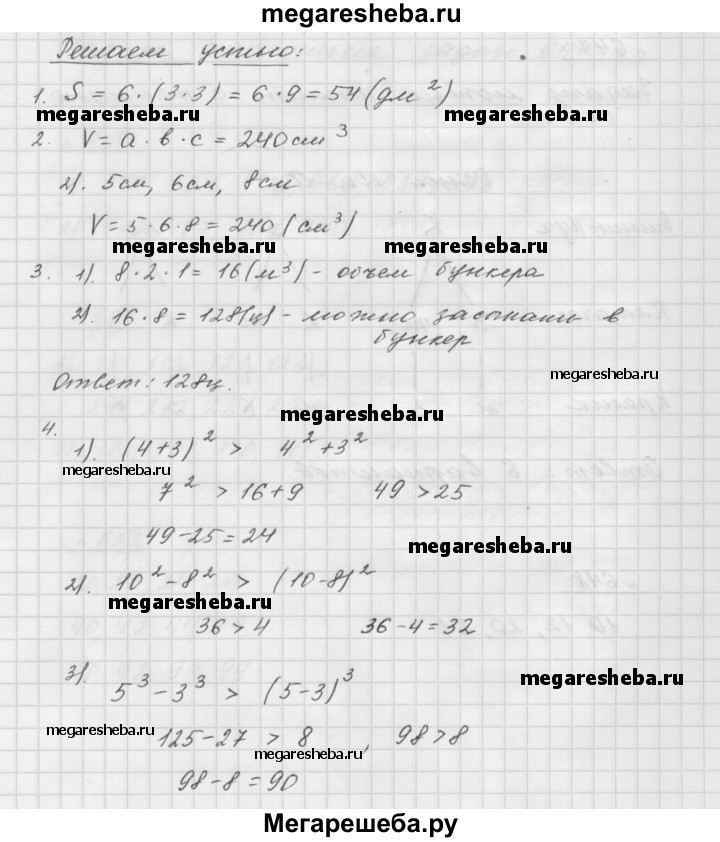 megaresheba.ru
Решаем устно:
1. S = 6 · (3 · 3) = 6 · 9 = 54 (дм²)
megaresheba.ru megaresheba.ru
2. V = a · b · c = 240 см³
2). 5см, 6см, 8см
V = 5 · 6 · 8 = 240 (см³)
megaresheba.ru megaresheba.ru
3. 1). 8 · 2 · 1 = 16 (м³) - объем бункера
2). 16 · 8 = 128 (ц) - можно засыпать в
бункер
megaresheba.ru
Ответ: 128ц.
megaresheba.ru
4.
1). (4+3)² > 4² + 3²
megaresheba.ru
7² > 16 + 9 49 > 25
49 - 25 = 24
megaresheba.ru
2). 10² - 8² > (10-8)²
megaresheba.ru
36 > 4 36 - 4 = 32
3). 5³ - 3³ > (5-3)³
megaresheba.ru
megaresheba.ru megaresheba.ru
125 - 27 > 8, 98 > 8
megaresheba.ru
98 - 8 = 90
Мегарешеба.ру